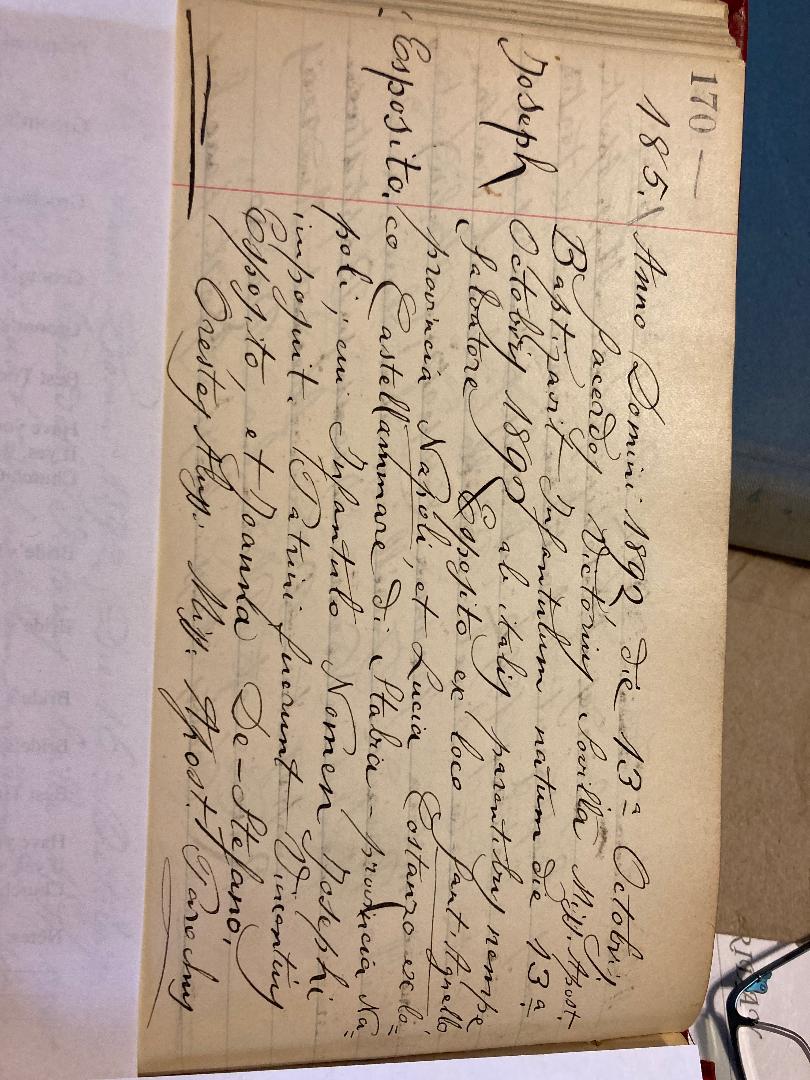 170 —
185. Anno Domini 1892 die 13ª Octobris
Sacerdos Victorius Sovilla Miss. Apost.
Baptizavit Infantulum natum die 13ª
Joseph Octobris 1892 ab italis parentibus nempe
Salvatore Esposito ex loco Sant-Agnello
provincia Napoli, et Lucia Costanzo ex lo=
Esposito. co Castellammare di Stabia - provincia Na=
poli; cui Infantulo Nomen Josephi
imposuit. Patrini fuerunt Vincentius
Esposito, et Joanna De-Stefano.
Orestes Miss. Apost. Parochus